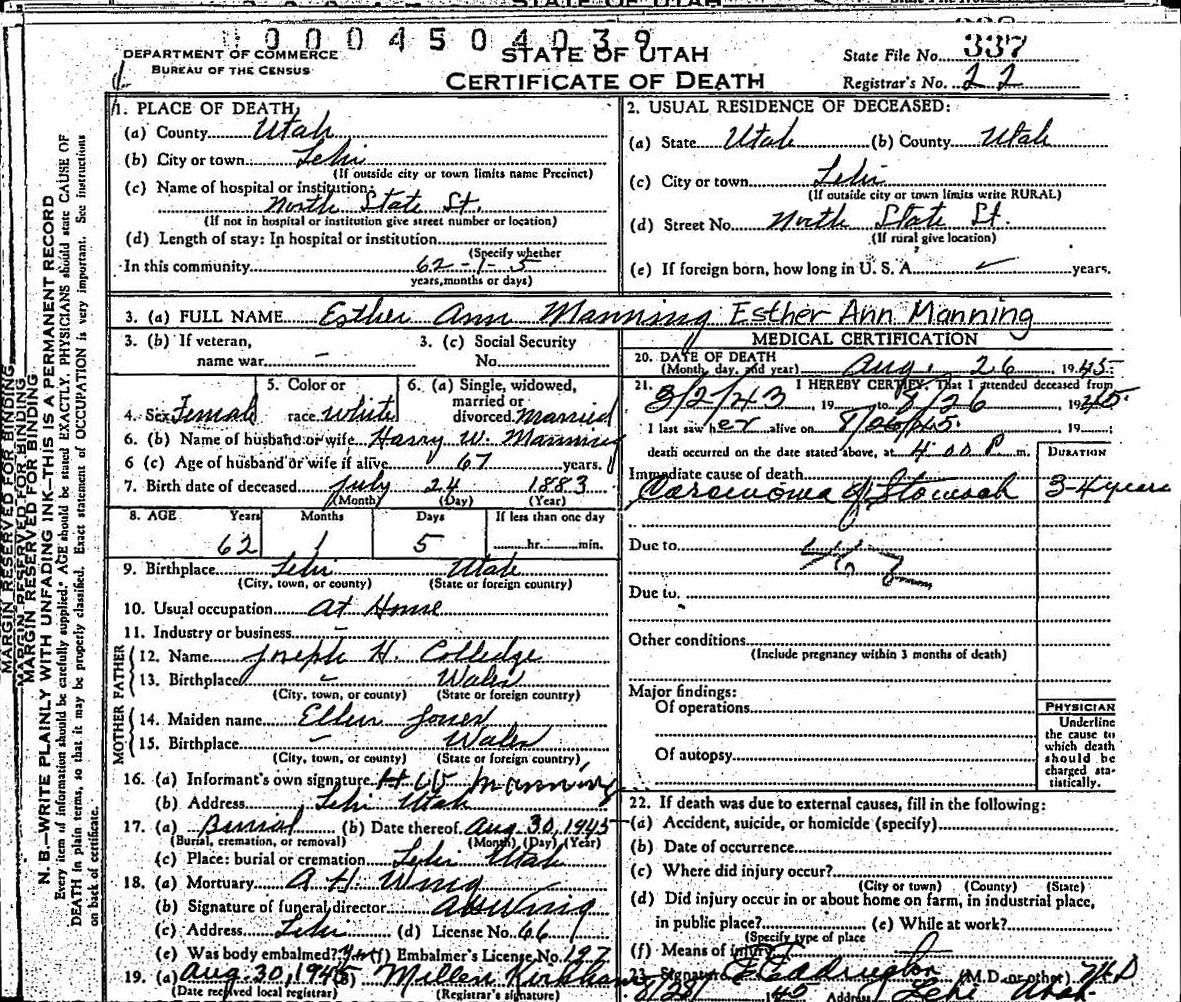 STATE OF UTAH
0004504039
DEPARTMENT OF COMMERCE
BUREAU OF THE CENSUS
STATE OF UTAH
CERTIFICATE OF DEATH
State File No. 337
Registrar's No. 22
MARGIN RESERVED FOR BINDING
MARGIN RESERVED FOR BINDING
MARGIN RESERVED FOR BINDING
N. B.—WRITE PLAINLY WITH UNFADING INK—THIS IS A PERMANENT RECORD
Every item of information should be carefully supplied. AGE should be stated EXACTLY. PHYSICIANS should state CAUSE OF
DEATH in plain terms, so that it may be properly classified. Exact statement of OCCUPATION is very important. See instructions
on back of certificate.
1. PLACE OF DEATH
(a) County Utah
(b) City or town Lehi
(If outside city or town limits name Precinct)
(c) Name of hospital or institution:
North State St.
(If not in hospital or institution give street number or location)
(d) Length of stay: In hospital or institution
(Specify whether
In this community 62-1-5
years, months or days)
2. USUAL RESIDENCE OF DECEASED:
(a) State Utah (b) County Utah
(c) City or town Lehi
(If outside city or town limits write RURAL)
(d) Street No. North State St.
(If rural give location)
(e) If foreign born, how long in U. S. A. years.
3. (a) FULL NAME Esther Ann Manning Esther Ann Manning
3. (b) If veteran,
name war —
3. (c) Social Security
No.
4. Sex Female
5. Color or
race White
6. (a) Single, widowed,
married or
divorced. Married
6. (b) Name of husband or wife Harry W. Manning
6 (c) Age of husband or wife if alive 67 years.
7. Birth date of deceased July 24 1883
(Month) (Day) (Year)
8. AGE Years Months Days If less than one day
62 1 5 hr. min.
9. Birthplace Lehi Utah
(City, town, or county) (State or foreign country)
10. Usual occupation At Home
11. Industry or business —
FATHER
12. Name Joseph H. Colledge
13. Birthplace Wales
(City, town, or county) (State or foreign country)
MOTHER
14. Maiden name Ellen Jones
15. Birthplace — Wales
(City, town, or county) (State or foreign country)
16. (a) Informant's own signature H W Manning
(b) Address Lehi Utah
17. (a) Burial (b) Date thereof Aug 30, 1945
(Burial, cremation, or removal) (Month) (Day) (Year)
(c) Place: burial or cremation Lehi Utah
18. (a) Mortuary A H. Wing
(b) Signature of funeral director A H Wing
(c) Address Lehi (d) License No. 66
(e) Was body embalmed? Yes (f) Embalmer's License No. 197
19. (a) Aug. 30, 1945 (b) Millen Kirkham
(Date received local registrar) (Registrar's signature)
MEDICAL CERTIFICATION
20. DATE OF DEATH
(Month, day, and year) Aug. 26 1945
21. I HEREBY CERTIFY, That I attended deceased from
3/2/43, 19 to 8/26 1945.
I last saw her alive on 8/26/45. 19
death occurred on the date stated above, at 4:00 P m.
DURATION
Immediate cause of death
Carcinoma of Stomach 3-4 years
Due to
Due to
Other conditions
(Include pregnancy within 3 months of death)
Major findings:
Of operations
Of autopsy
PHYSICIAN
Underline
the cause to
which death
should be
charged sta-
tistically.
22. If death was due to external causes, fill in the following:
(a) Accident, suicide, or homicide (specify)
(b) Date of occurrence
(c) Where did injury occur?
(City or town) (County) (State)
(d) Did injury occur in or about home on farm, in industrial place,
in public place? (e) While at work?
(Specify type of place
(f) Means of injury
23. Signature (M.D. or other) M.D
8/28/ Address Lehi Utah